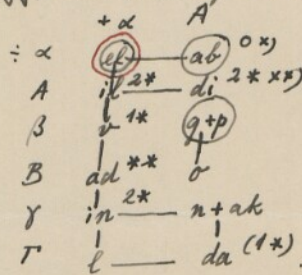 + α A
÷ α ef ab 0*)
A il 2* di 2* **)
β v 1* g+p
B ad ** o
γ in 2* n + ak
Γ l da (1*)